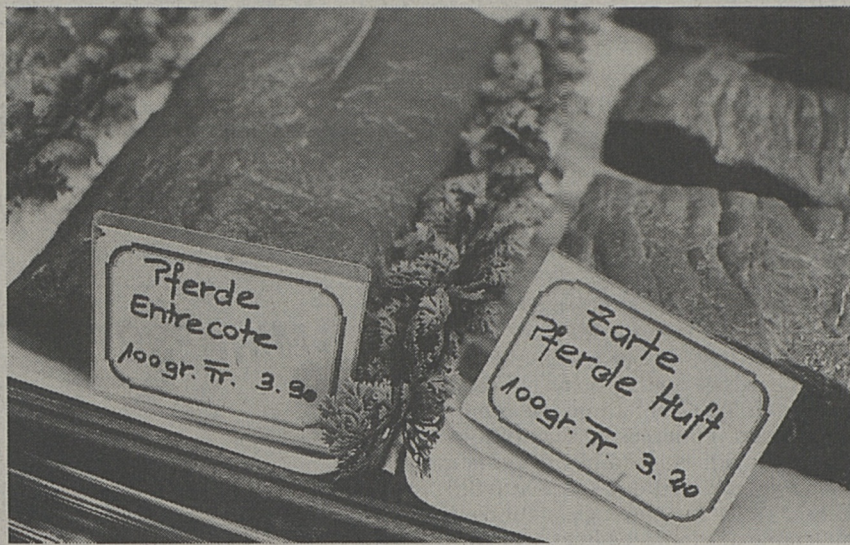 Pferde
Entrecote
100gr. Fr. 3.90
Zarte
Pferde Huft
100gr. Fr. 3.20